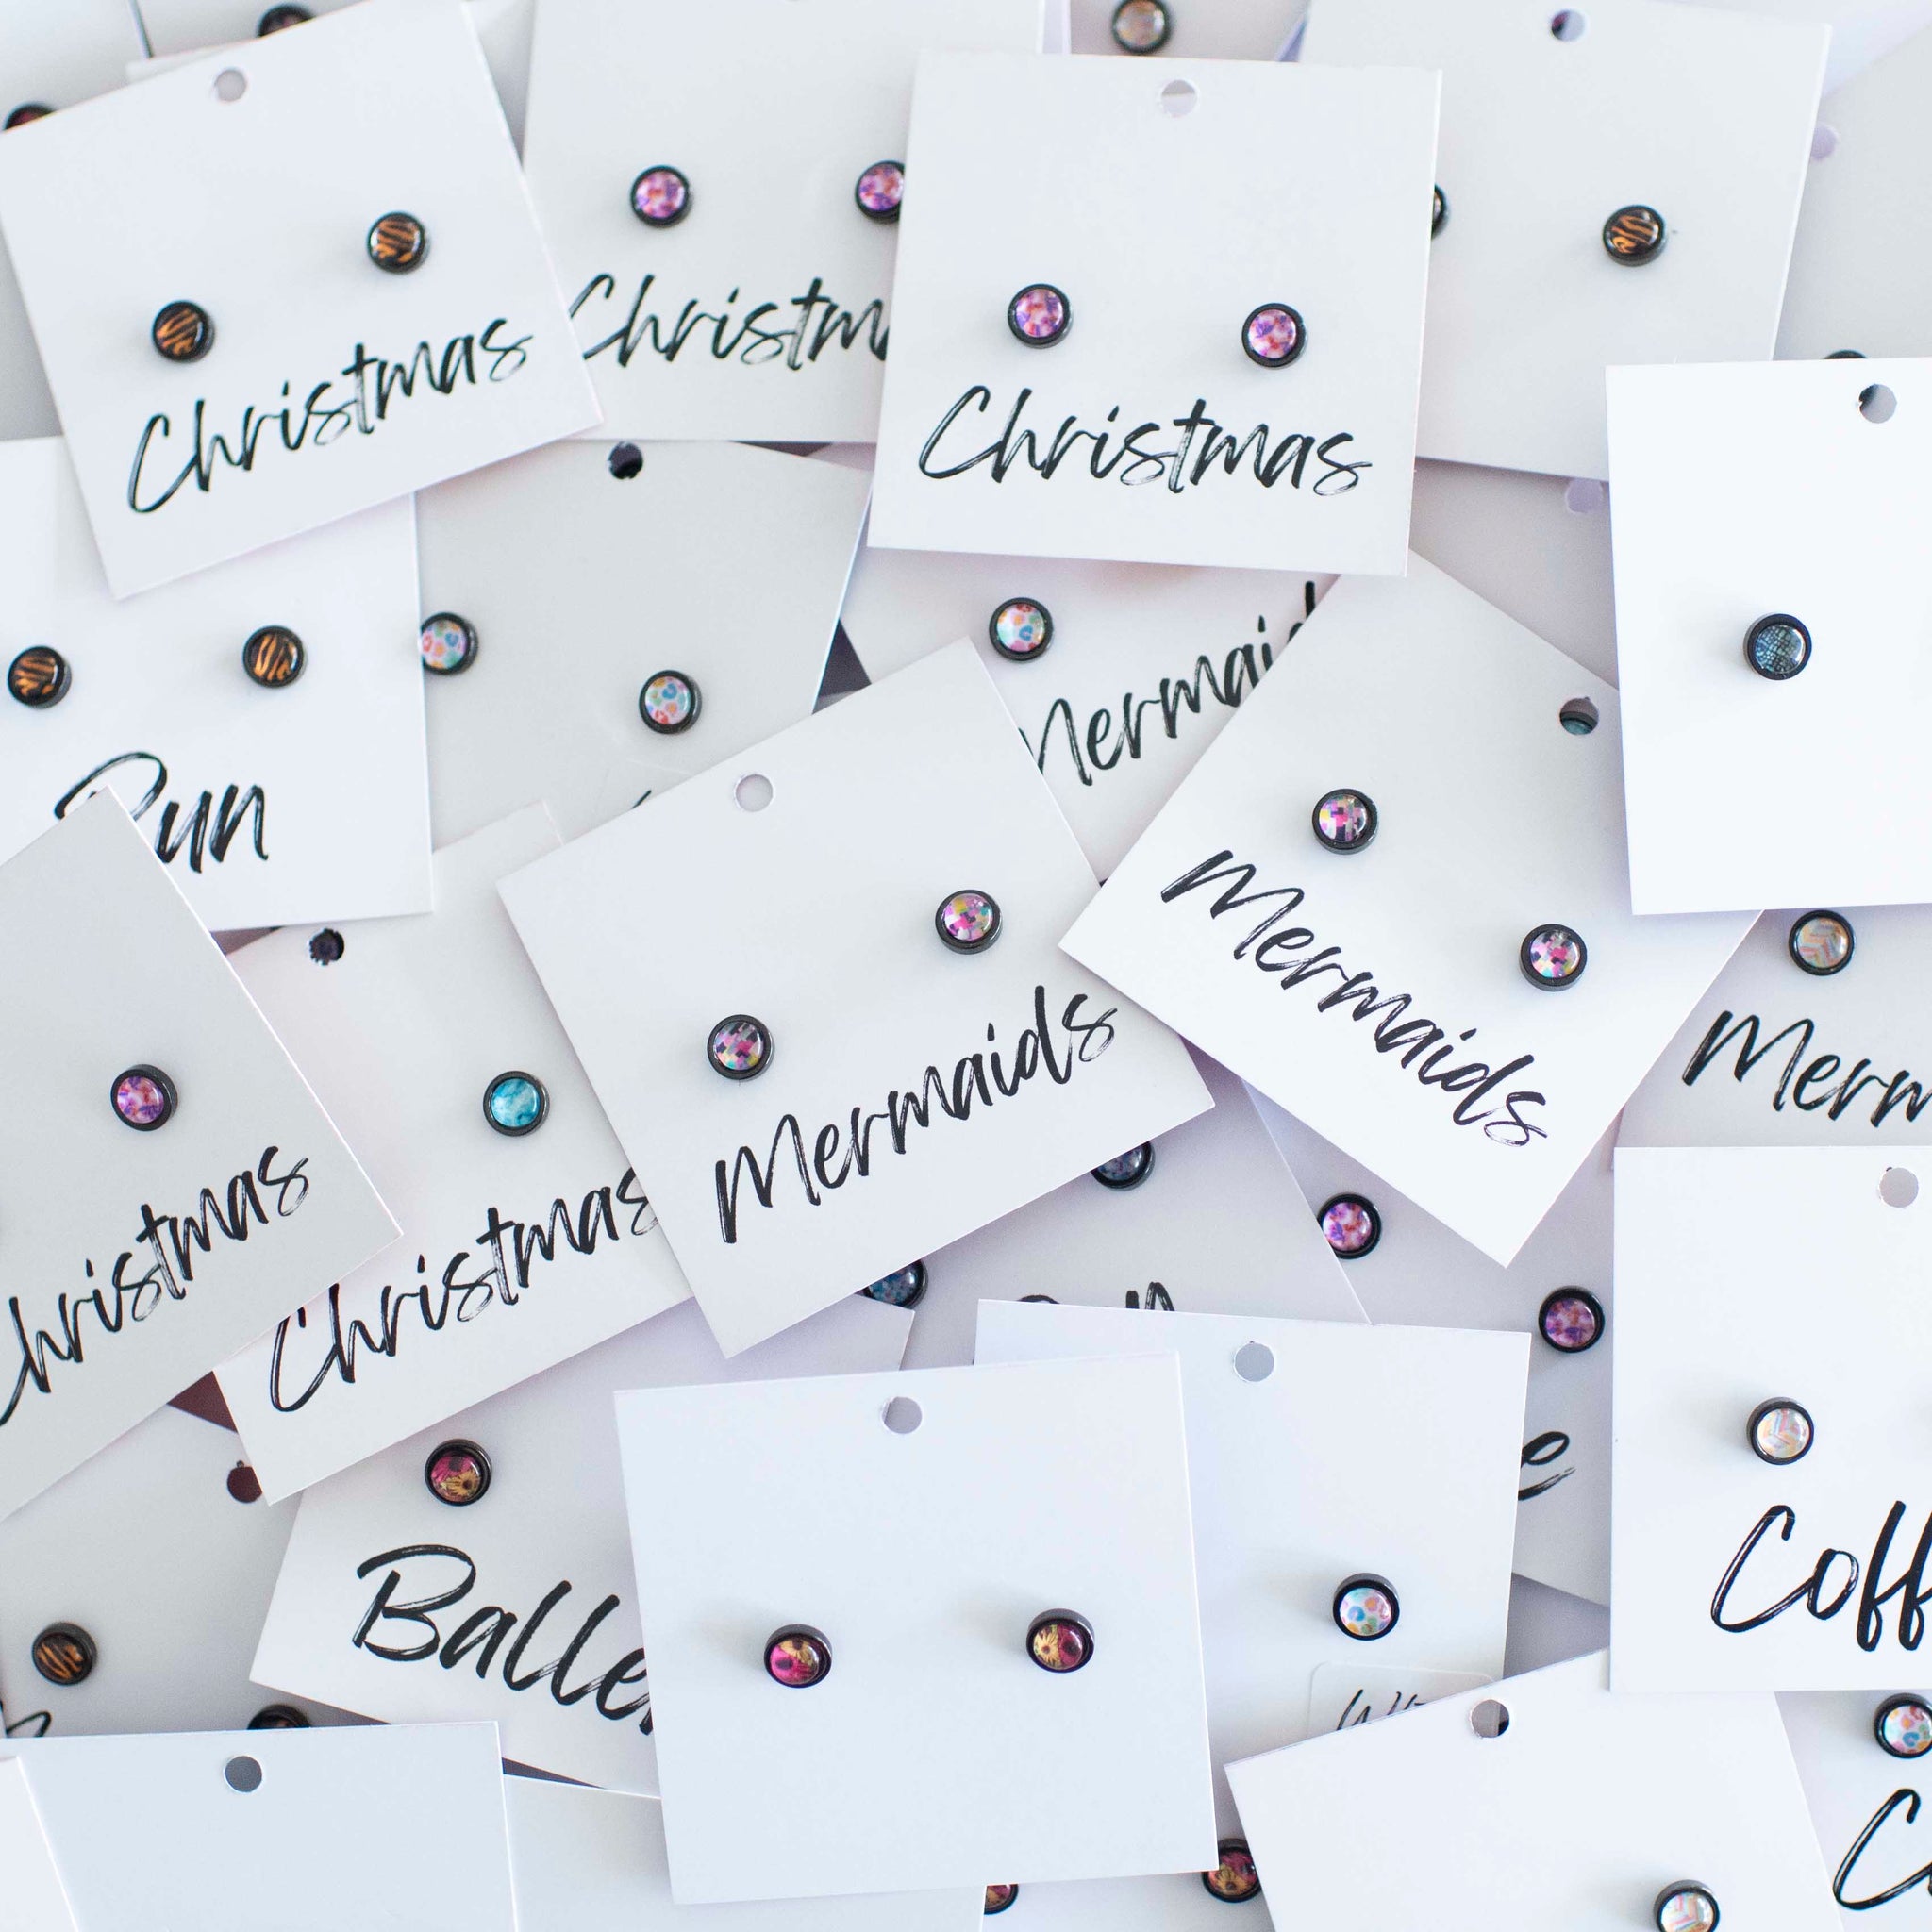 Christmas
Christm
Christmas
Mermaid
Run
Mermaids
Mermaids
Merm
hristmas
Christmas
Balle
Coff
e
C